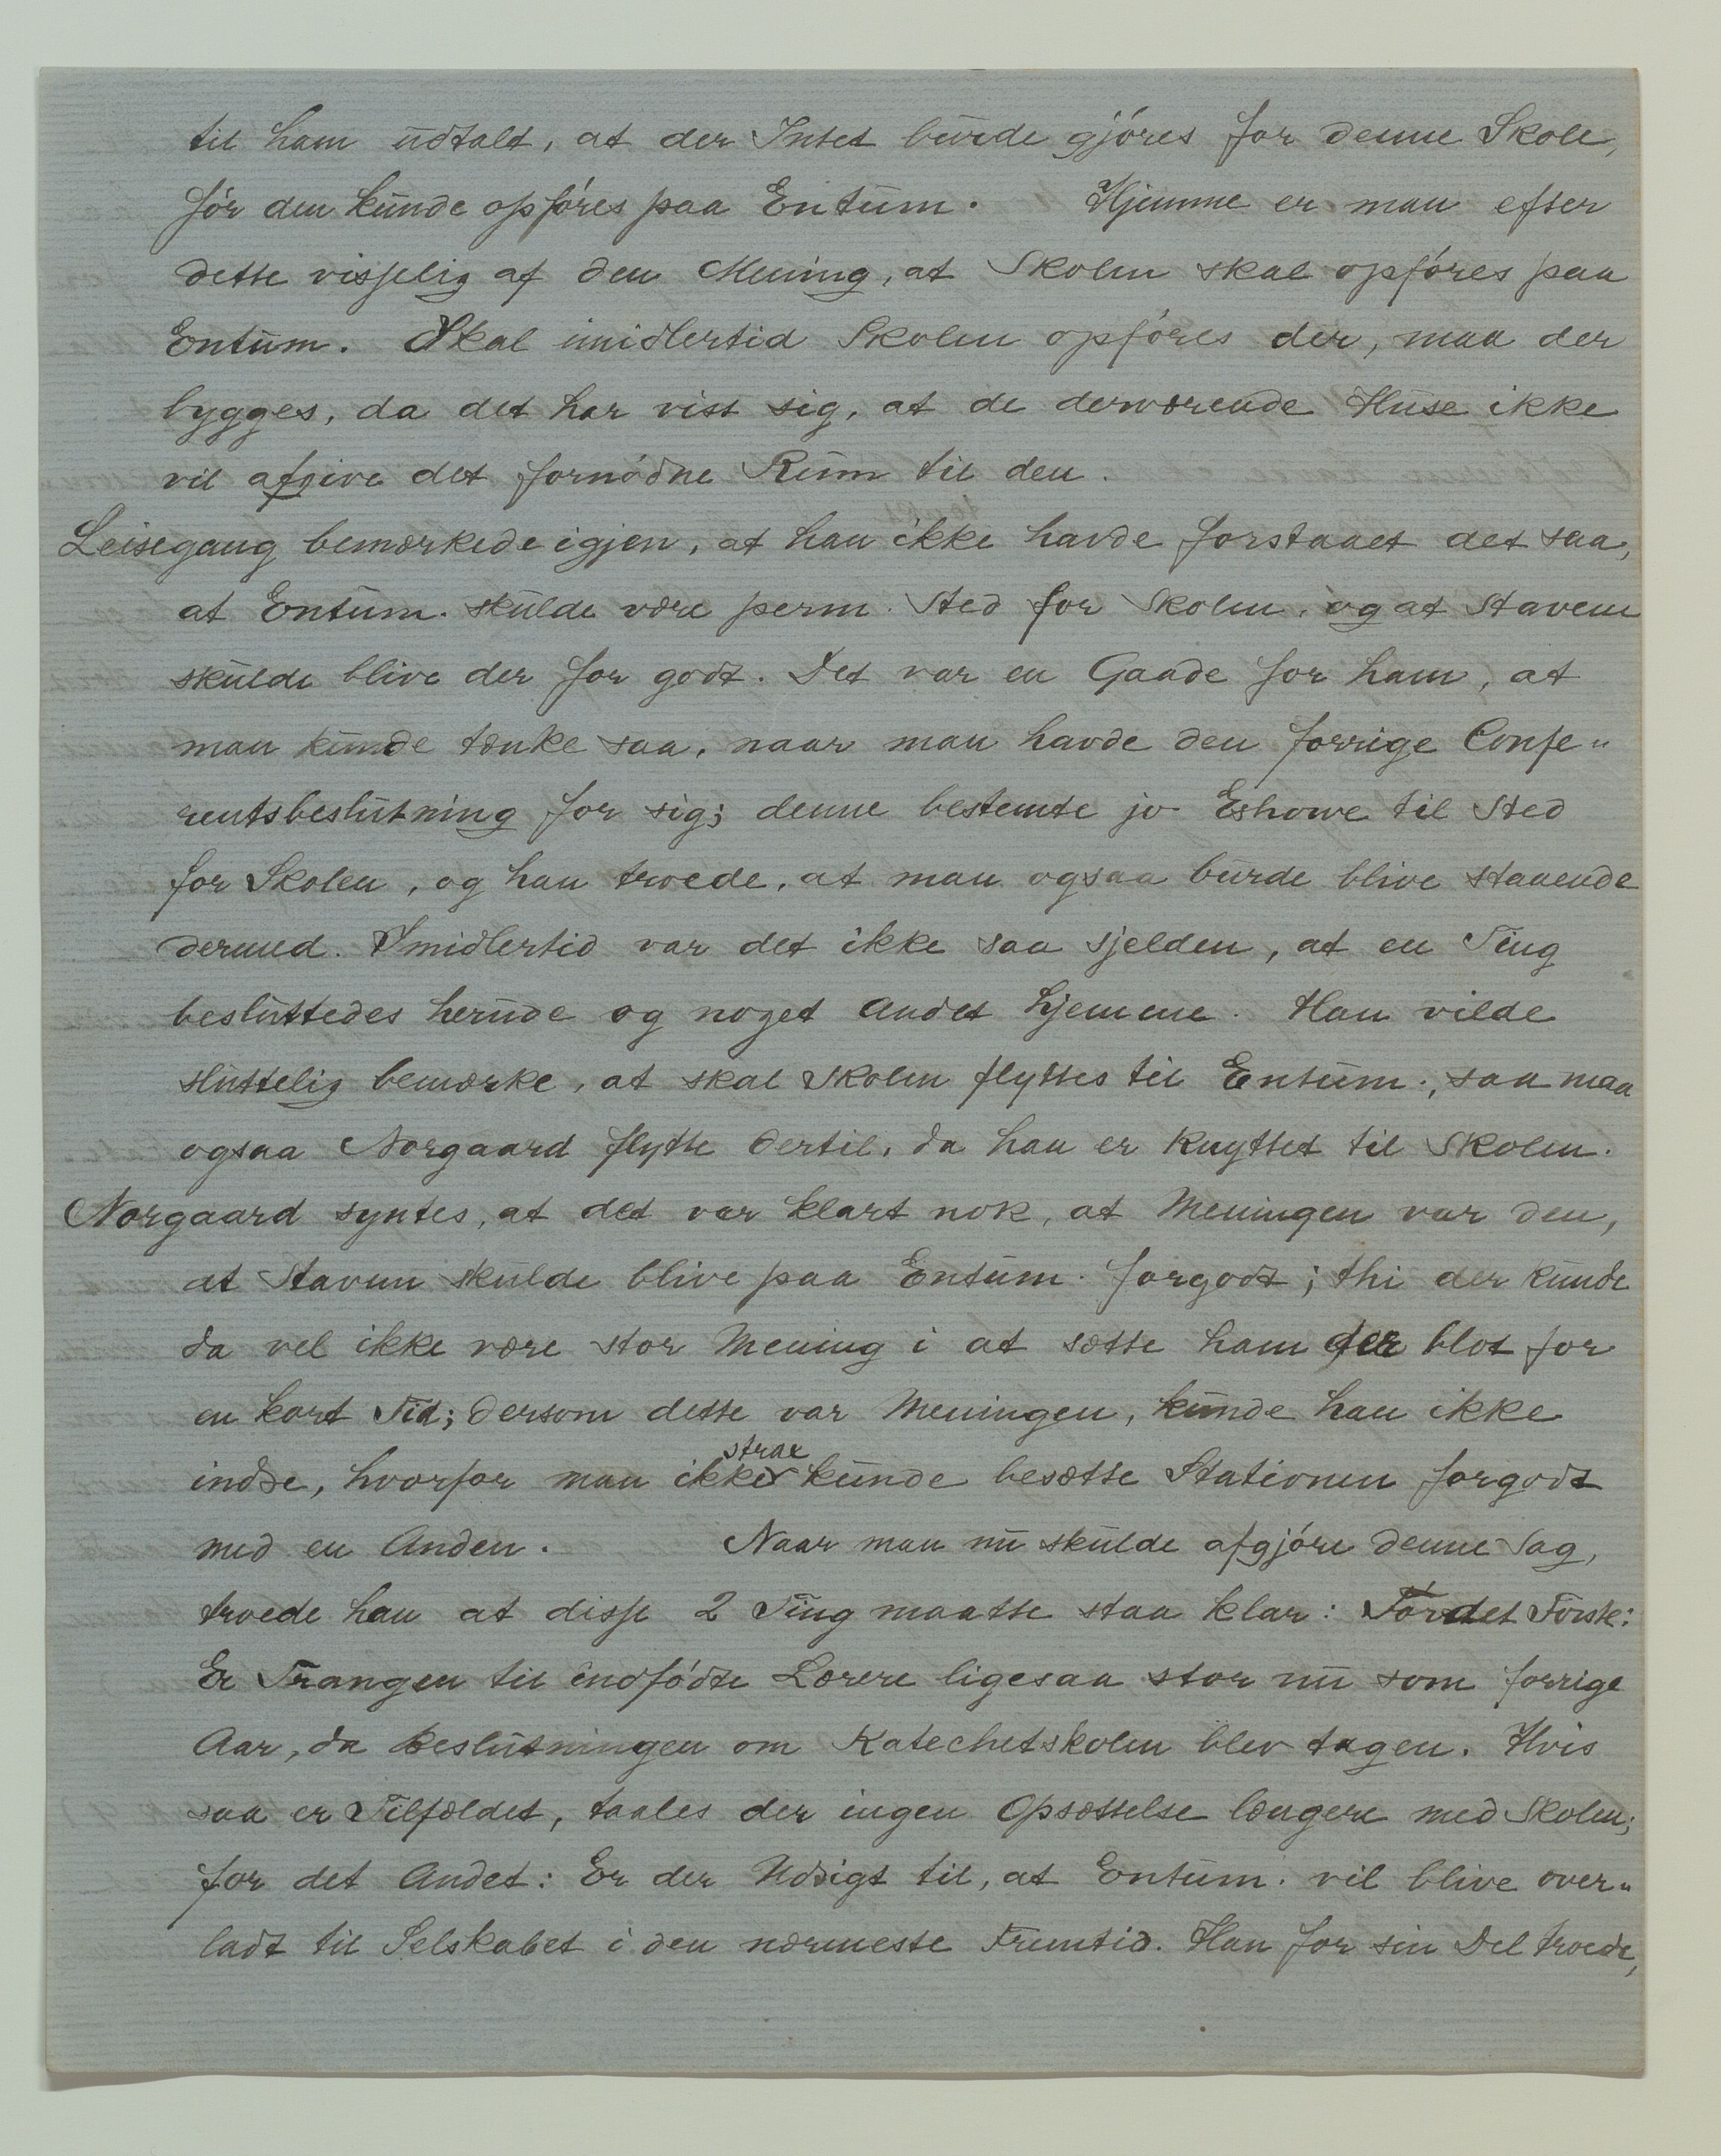 til ham udtalt, at der Intet burde gjöres for denne Skole,
för den kunde opföres paa Entum. Hjemme er man efter
dette visselig af den Mening, at Skolen skal opföres paa
Entum. Skal imidlertid Skolen opföres der, maa der
bygges, da det har vist sig, at de derværende Huse ikke
vil afgive det fornödne Rum til den.
Leisegang bemærkede igjen, at han ikke havde forstaaet det saa,
at Entum. skulde være perm. Sted for Skolen, og at Stavem
skulde blive der for godt. Det var en Gaade for ham, at
man kunde tænke saa, naar man havde den forrige Confe"
rentsbeslutning for sig; denne bestemte jo Eshowe til Sted
for Skolen, og han troede, at man ogsaa burde blive staaende
dermed. Imidlertid var det ikke saa sjelden, at en Ting
besluttedes herude og noget Andet hjemme. Han vilde
sluttelig bemærke, at skal Skolen flyttes til Entum., saa maa
ogsaa Norgaard flytte dertil, da han er knyttet til Skolen.
Norgaard syntes, at det var klart nok, at Meningen var den,
at Stavem skulde blive paa Entum. forgodt; thi der kunde
da vel ikke være stor Mening i at sætte ham der blot for
en kort Tid; dersom dette var Meningen, kunde han ikke
strax
indse, hvorfor man ikke kunde besætte Stationen forgodt
med en Anden. Naar man nu skulde afgjöre denne Sag,
troede han at disse 2 Ting maatte staa klar: For det Förste:
Er Trangen til indfödte Lærere ligesaa stor nu som forrige
Aar, da Beslutningen om Katechetskolen blev tagen. Hvis
saa er Tilfældet, taales der ingen Opsættelse længere med Skolen;
for det Andet: Er der Udsigt til, at Entum. vil blive over"
ladt til Selskabet i den nærmeste Fremtid. Han for sin Del troede,